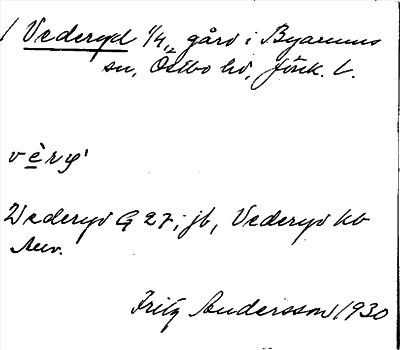 Vederyd 1/4, gård i Byarums
sn, Östbo hd, Jönk. l.
Vederyd G 27; jb, Vederyd kb
Fritz Andersson 1930